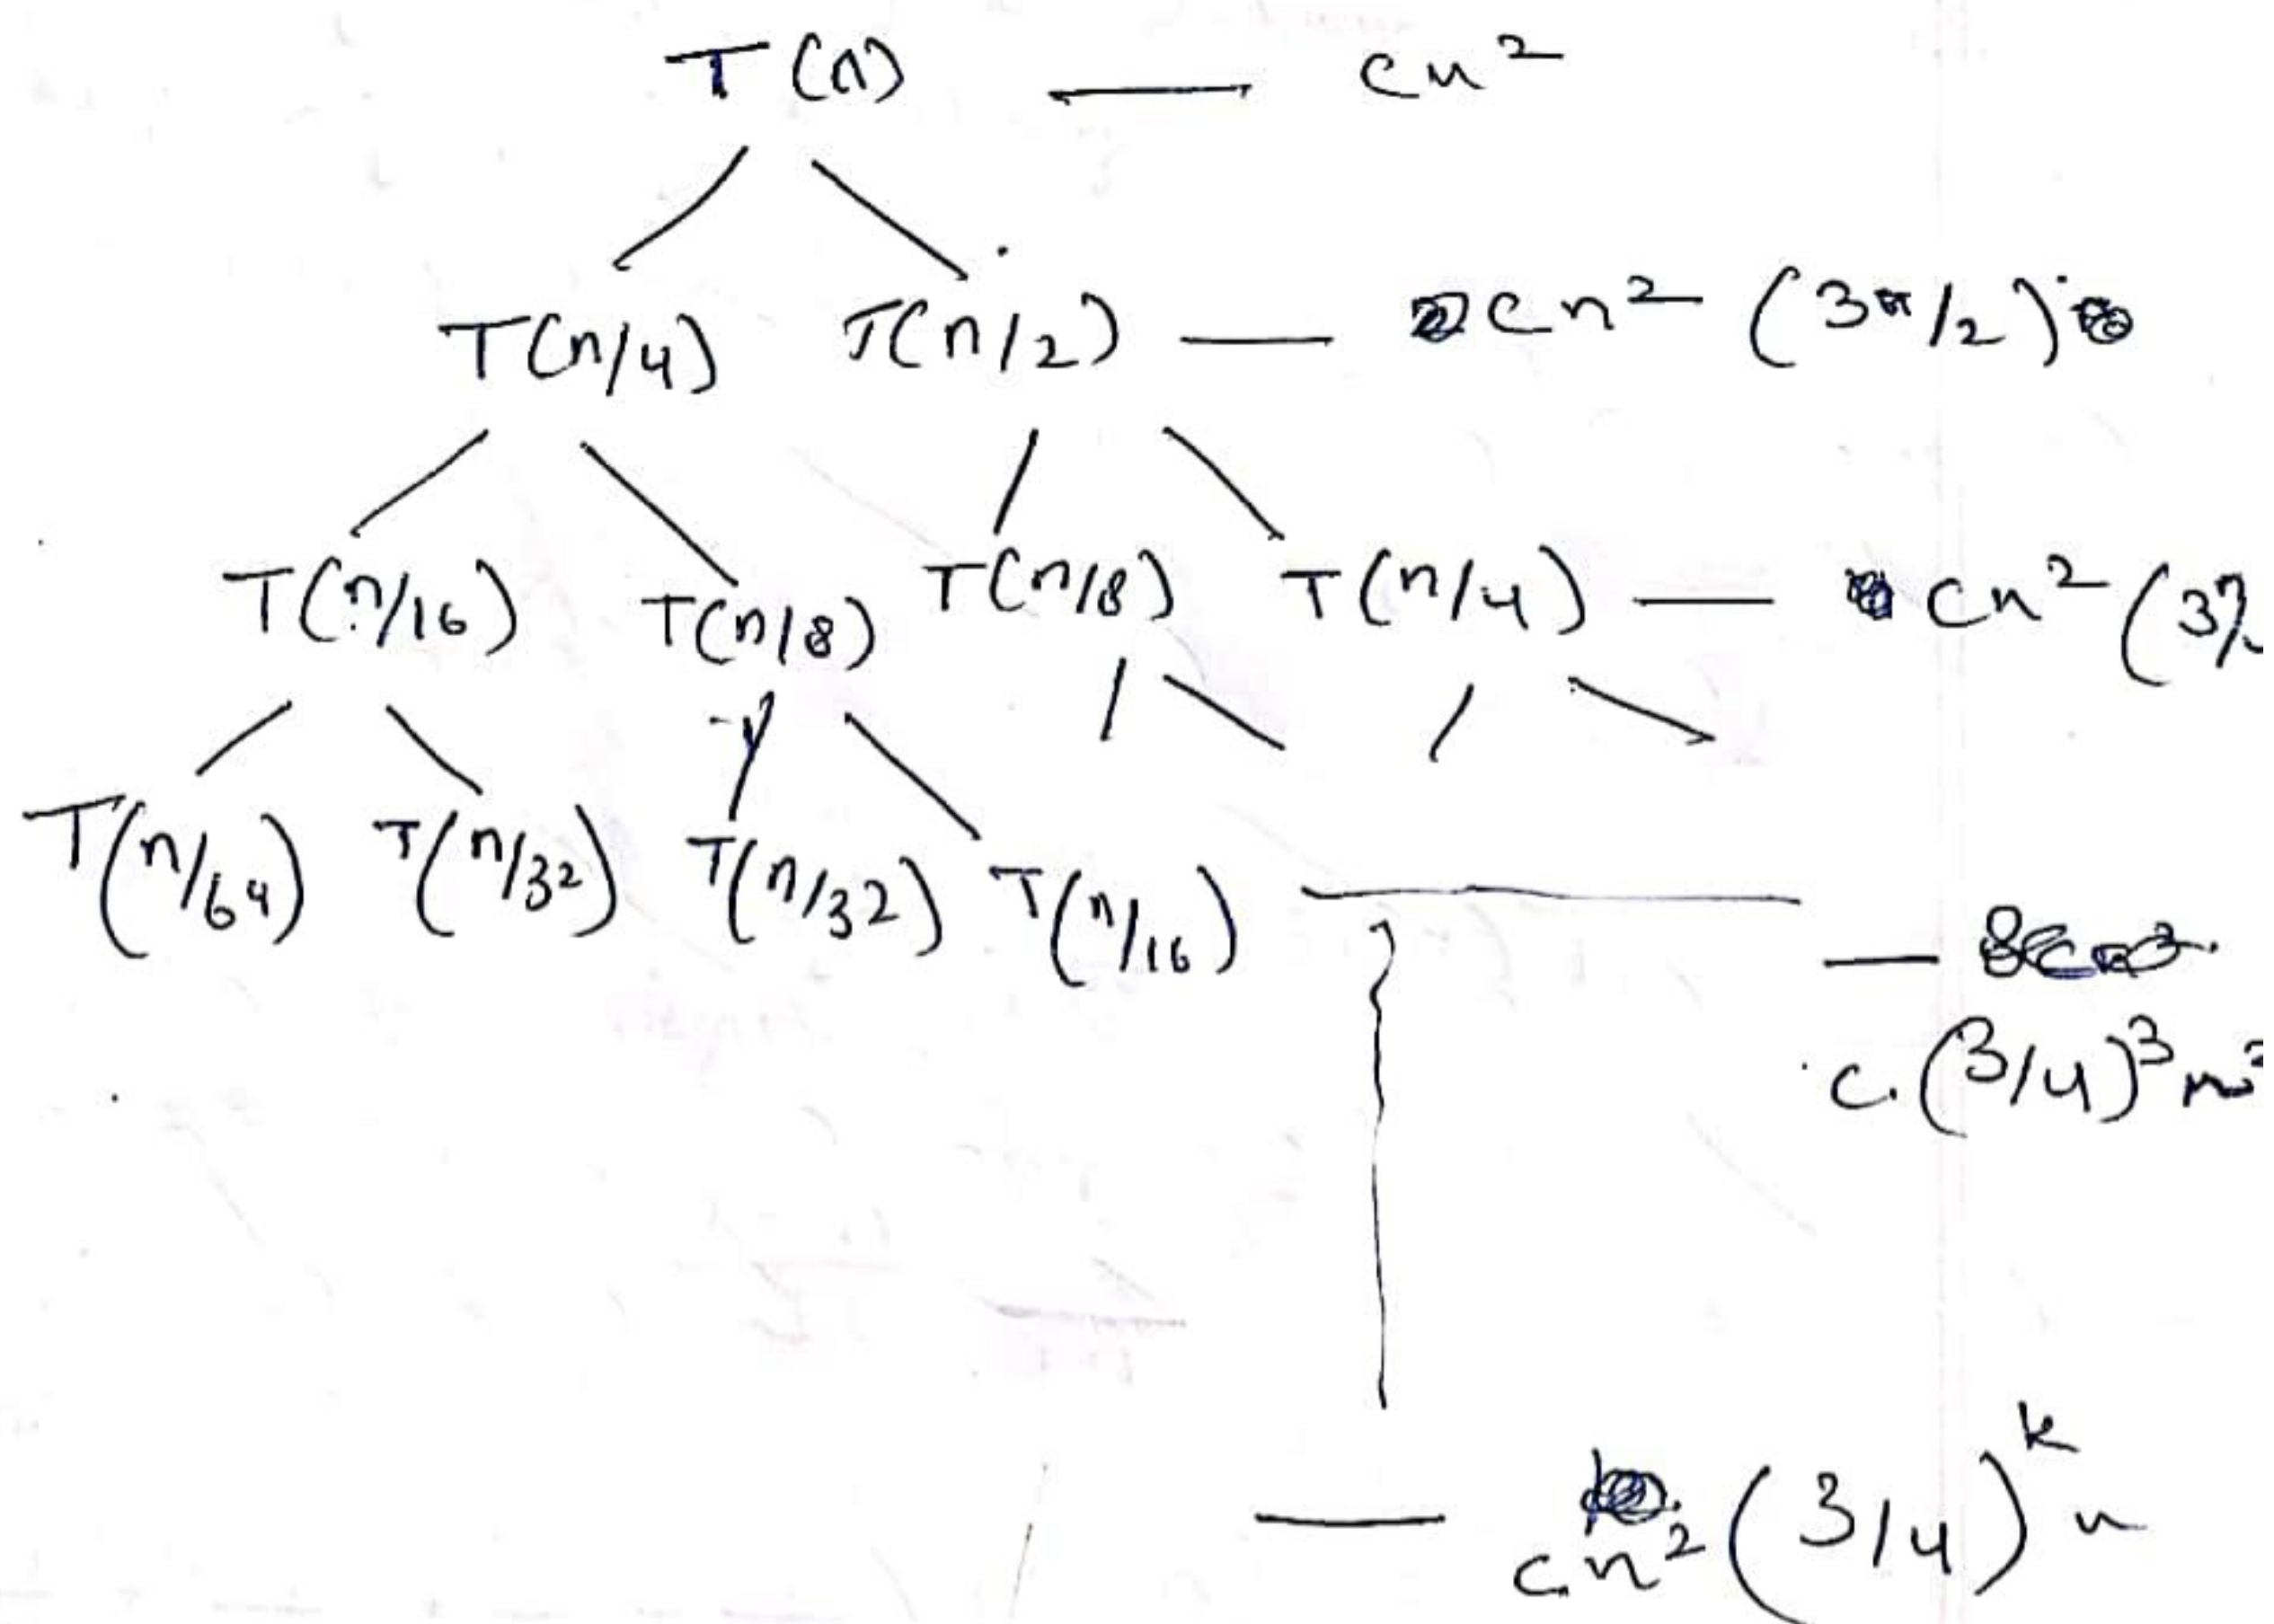 T(n) — cn²
T(n/4) T(n/2) — cn² (3n/2)
T(n/16) T(n/8) T(n/8) T(n/4) — cn² (3
T(n/64) T(n/32) T(n/32) T(n/16) —
c.(3/4)³n²
— cn² (3/4)ᵏ n